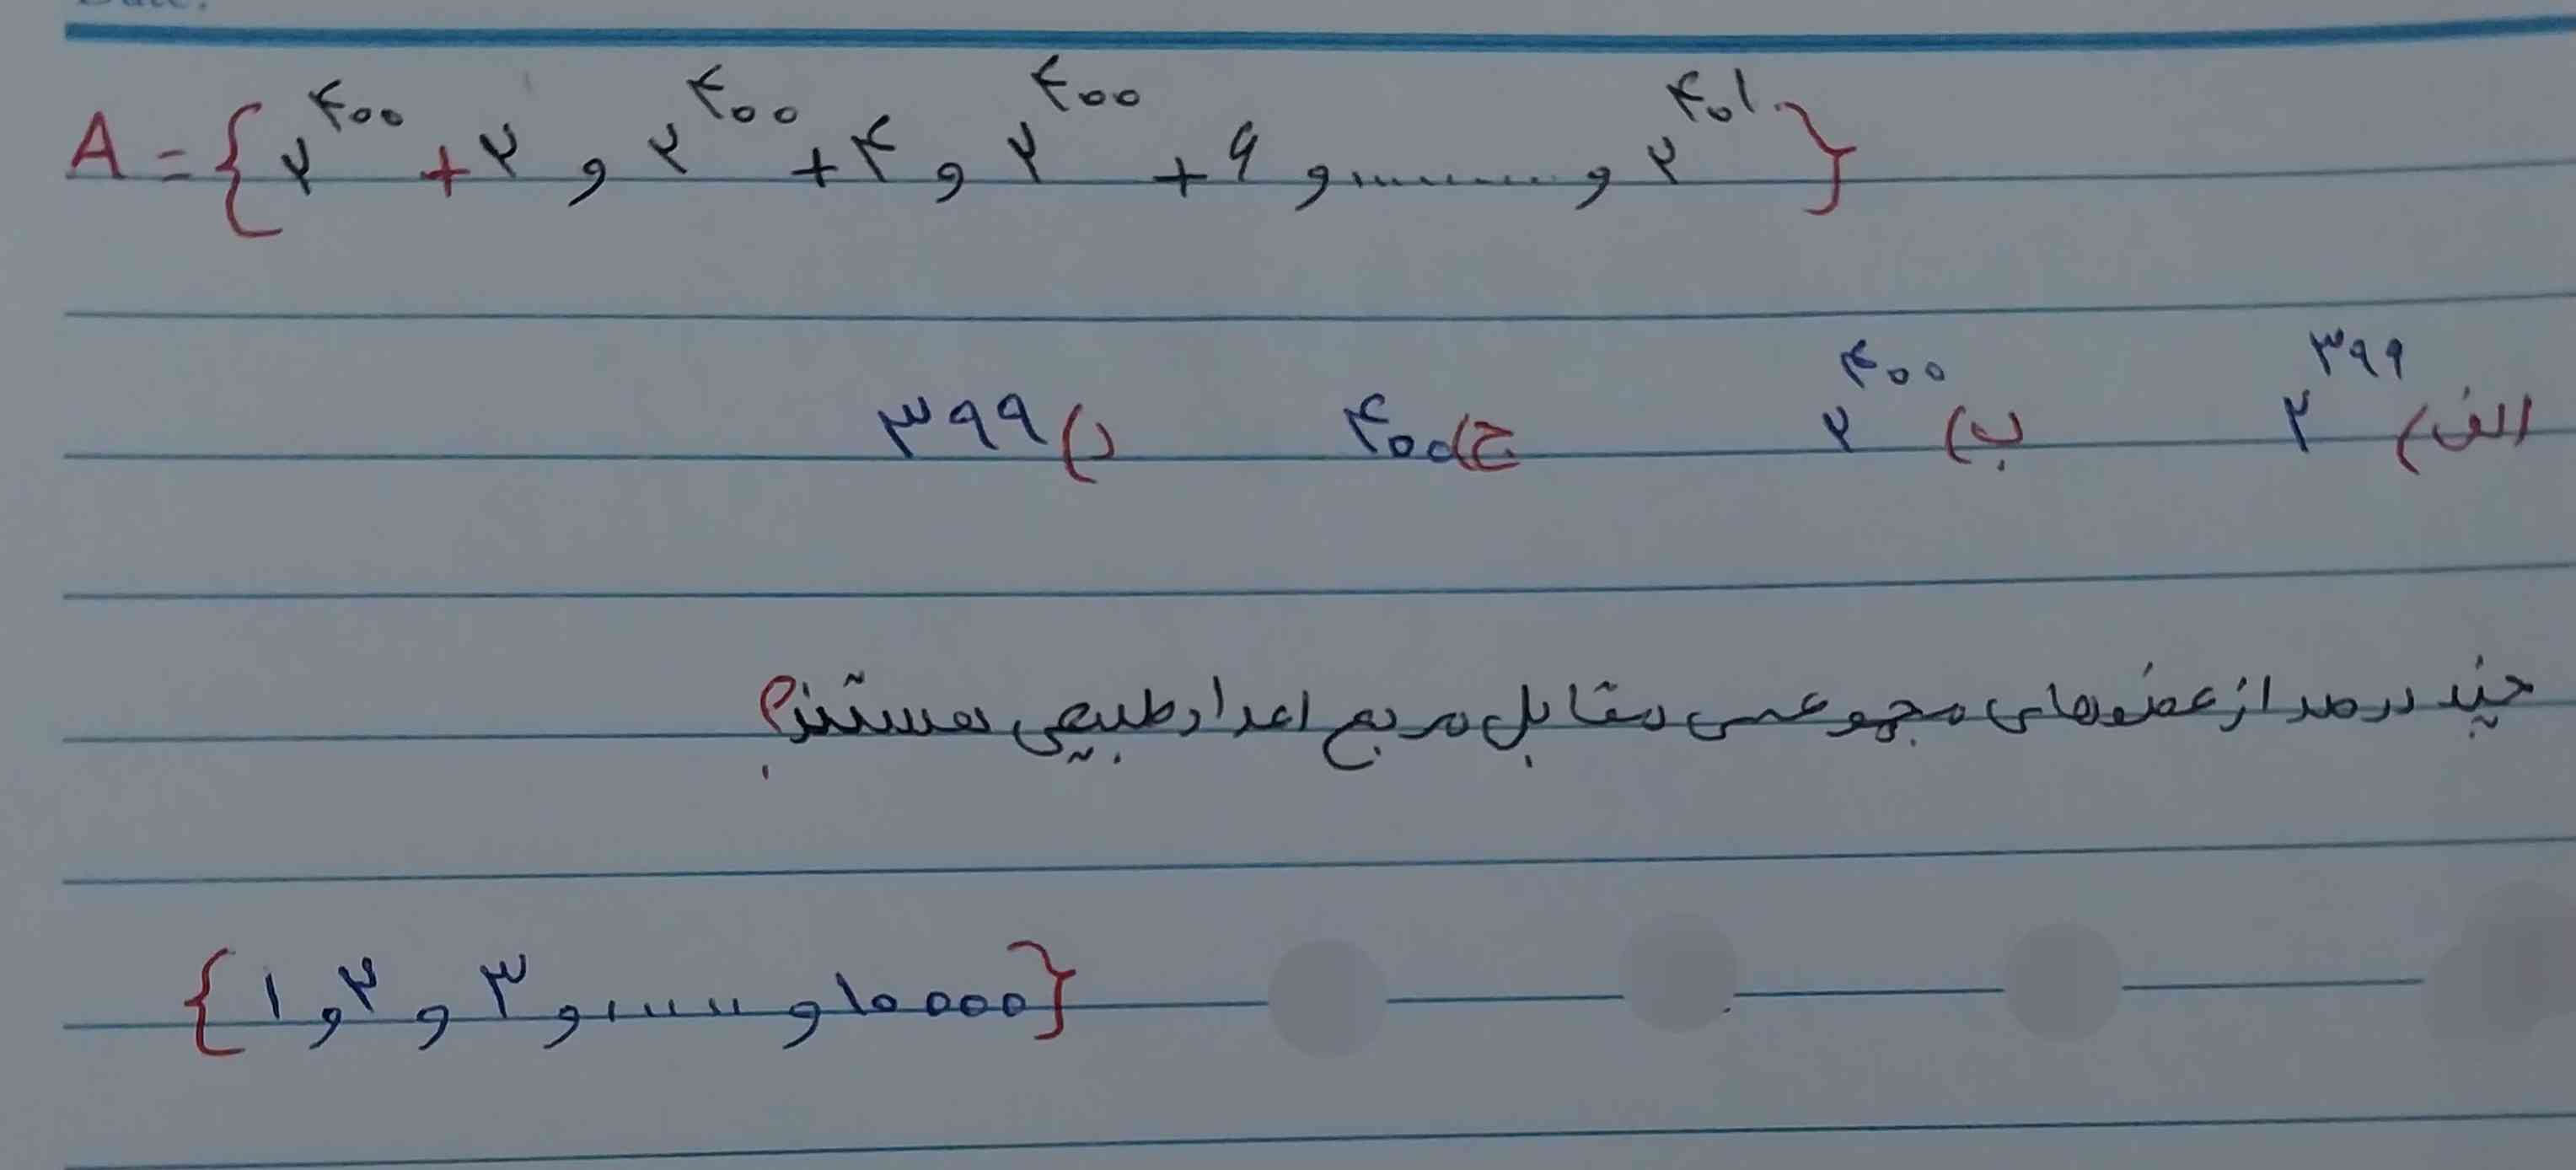 A = {۲^۴۰۰ + ۲ , ۲^۴۰۰ + ۴ , ۲^۴۰۰ + ۶ , ......... , ۲^۴۰۱}
الف) ۲^۳۹۹ ب) ۲^۴۰۰ ج) ۴۰۰ د) ۳۹۹
چند درصد از عضوهای مجموعه‌ی مقابل مربع اعداد طبیعی هستند؟
{۱ , ۲ , ۳ , ...... , ۱۰۰۰۰}